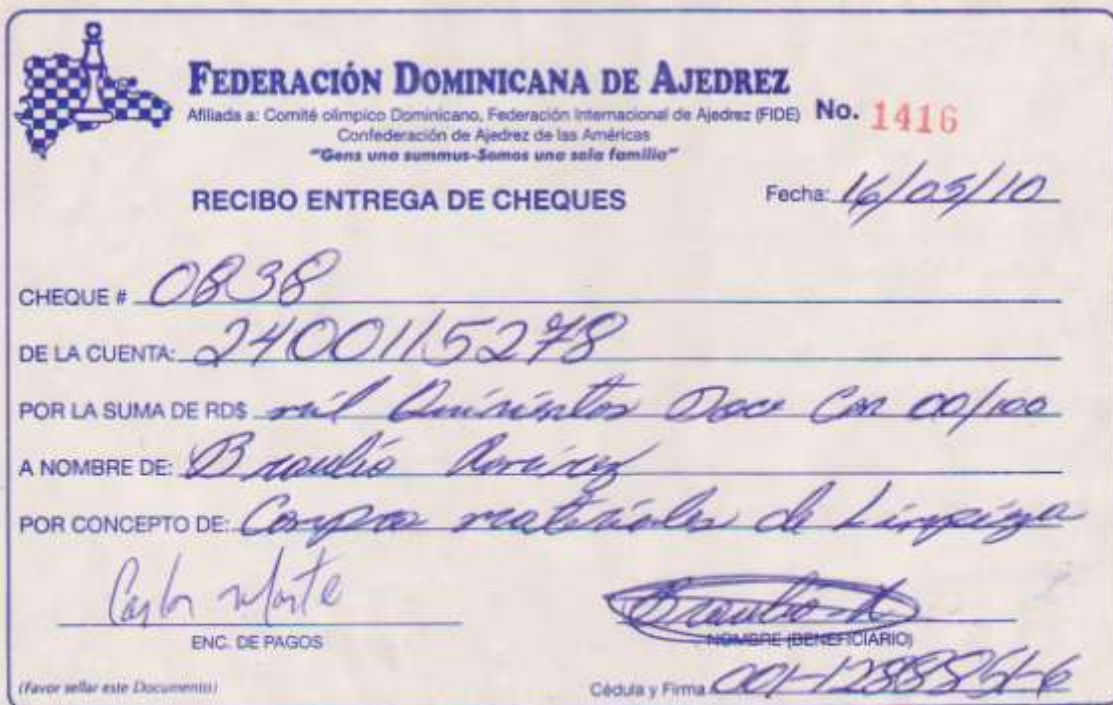 FEDERACIÓN DOMINICANA DE AJEDREZ
Afiliada a: Comité olímpico Dominicano, Federación Internacional de Ajedrez (FIDE) No. 1416
Confederación de Ajedrez de las Américas
"Gens una summus-Somos una sola familia"
RECIBO ENTREGA DE CHEQUES Fecha: 16/05/10
CHEQUE # 0838
DE LA CUENTA: 2400115278
POR LA SUMA DE RD$ mil Quinientos Doce Con 00/100
A NOMBRE DE: Braulio Ramirez
POR CONCEPTO DE: Compra materiales de Limpieza
Carlos Marte Braulio R
ENC. DE PAGOS NOMBRE (BENEFICIARIO)
(Favor sellar este Documento) Cédula y Firma 001-1288851-6